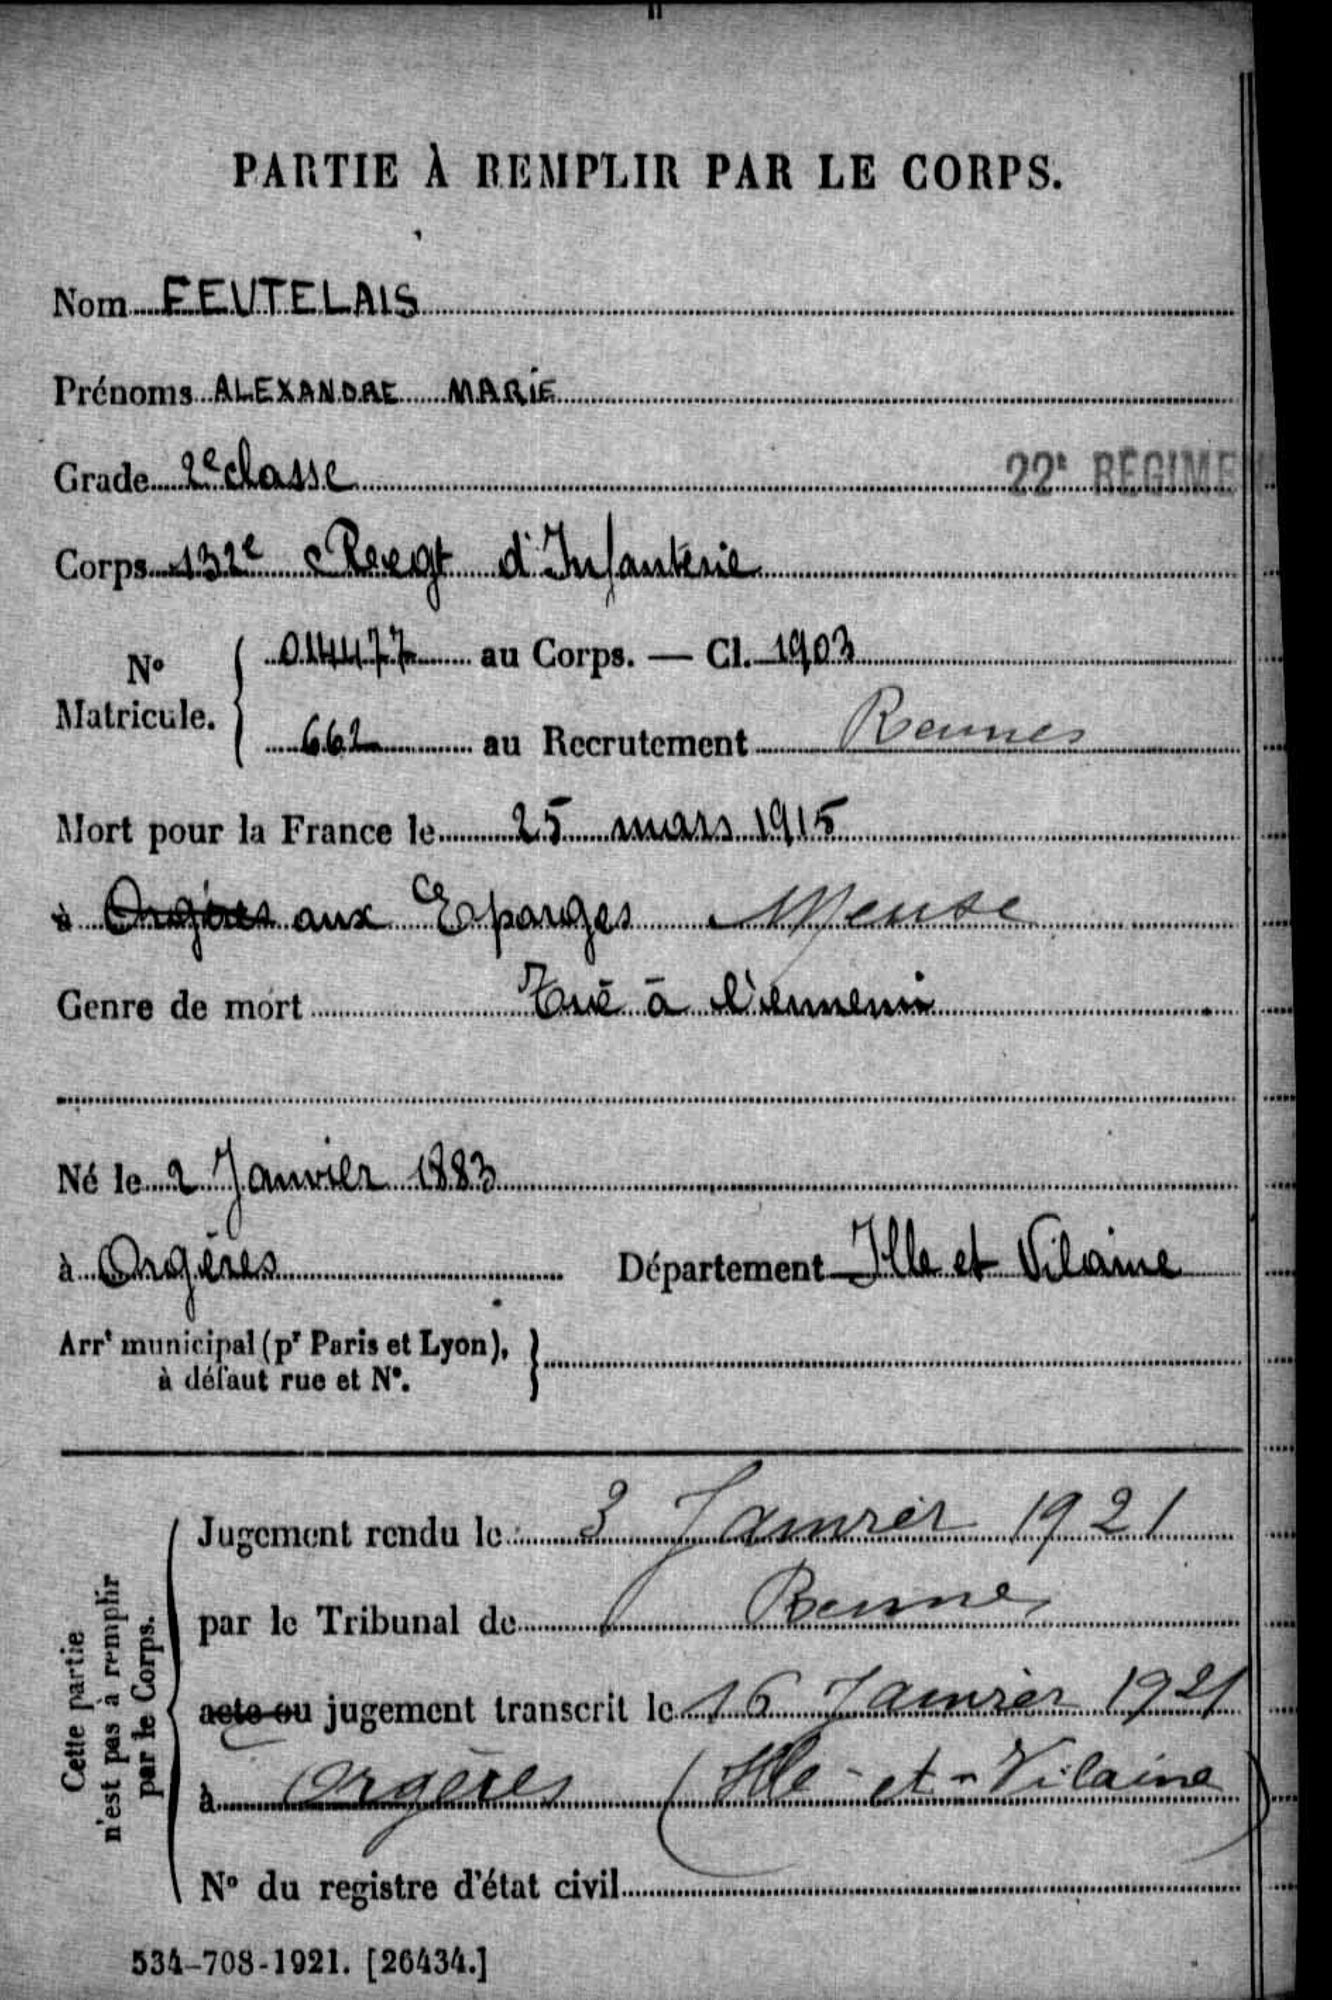 PARTIE À REMPLIR PAR LE CORPS.
Nom FEUTELAIS
Prénoms ALEXANDRE MARIE
Grade 2e classe
22e RÉGIME
Corps 132e Regt d'Infanterie
No Matricule. 014477 au Corps. — Cl. 1903
662 au Recrutement Rennes
Mort pour la France le 25 mars 1915
à Orgères aux Eparges Meuse
Genre de mort Tué à l'ennemi
Né le 2 Janvier 1883
à Orgères Département Ille et Vilaine
Arrt municipal (pr Paris et Lyon),
à défaut rue et No.
Cette partie
n'est pas à remplir
par le Corps.
Jugement rendu le 3 Janvier 1921
par le Tribunal de Rennes
acte ou jugement transcrit le 16 Janvier 1921
à Orgères (Ille-et-Vilaine)
No du registre d'état civil
534-708-1921. [26434.]